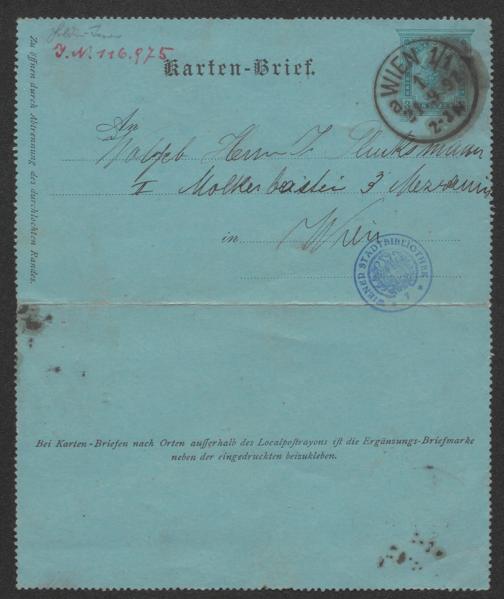 J. N. 116.975
Karten-Brief.
WIEN 1/1
2-3
An
Herrn
I Molkerbastei 3 Mezzanin
in Wien
WIENER STADTBIBLIOTHEK
Zu öffnen durch Abtrennung des durchlochten Randes.
Bei Karten-Briefen nach Orten ausserhalb des Localpostrayons ist die Ergänzungs-Briefmarke
neben der eingedruckten beizukleben.